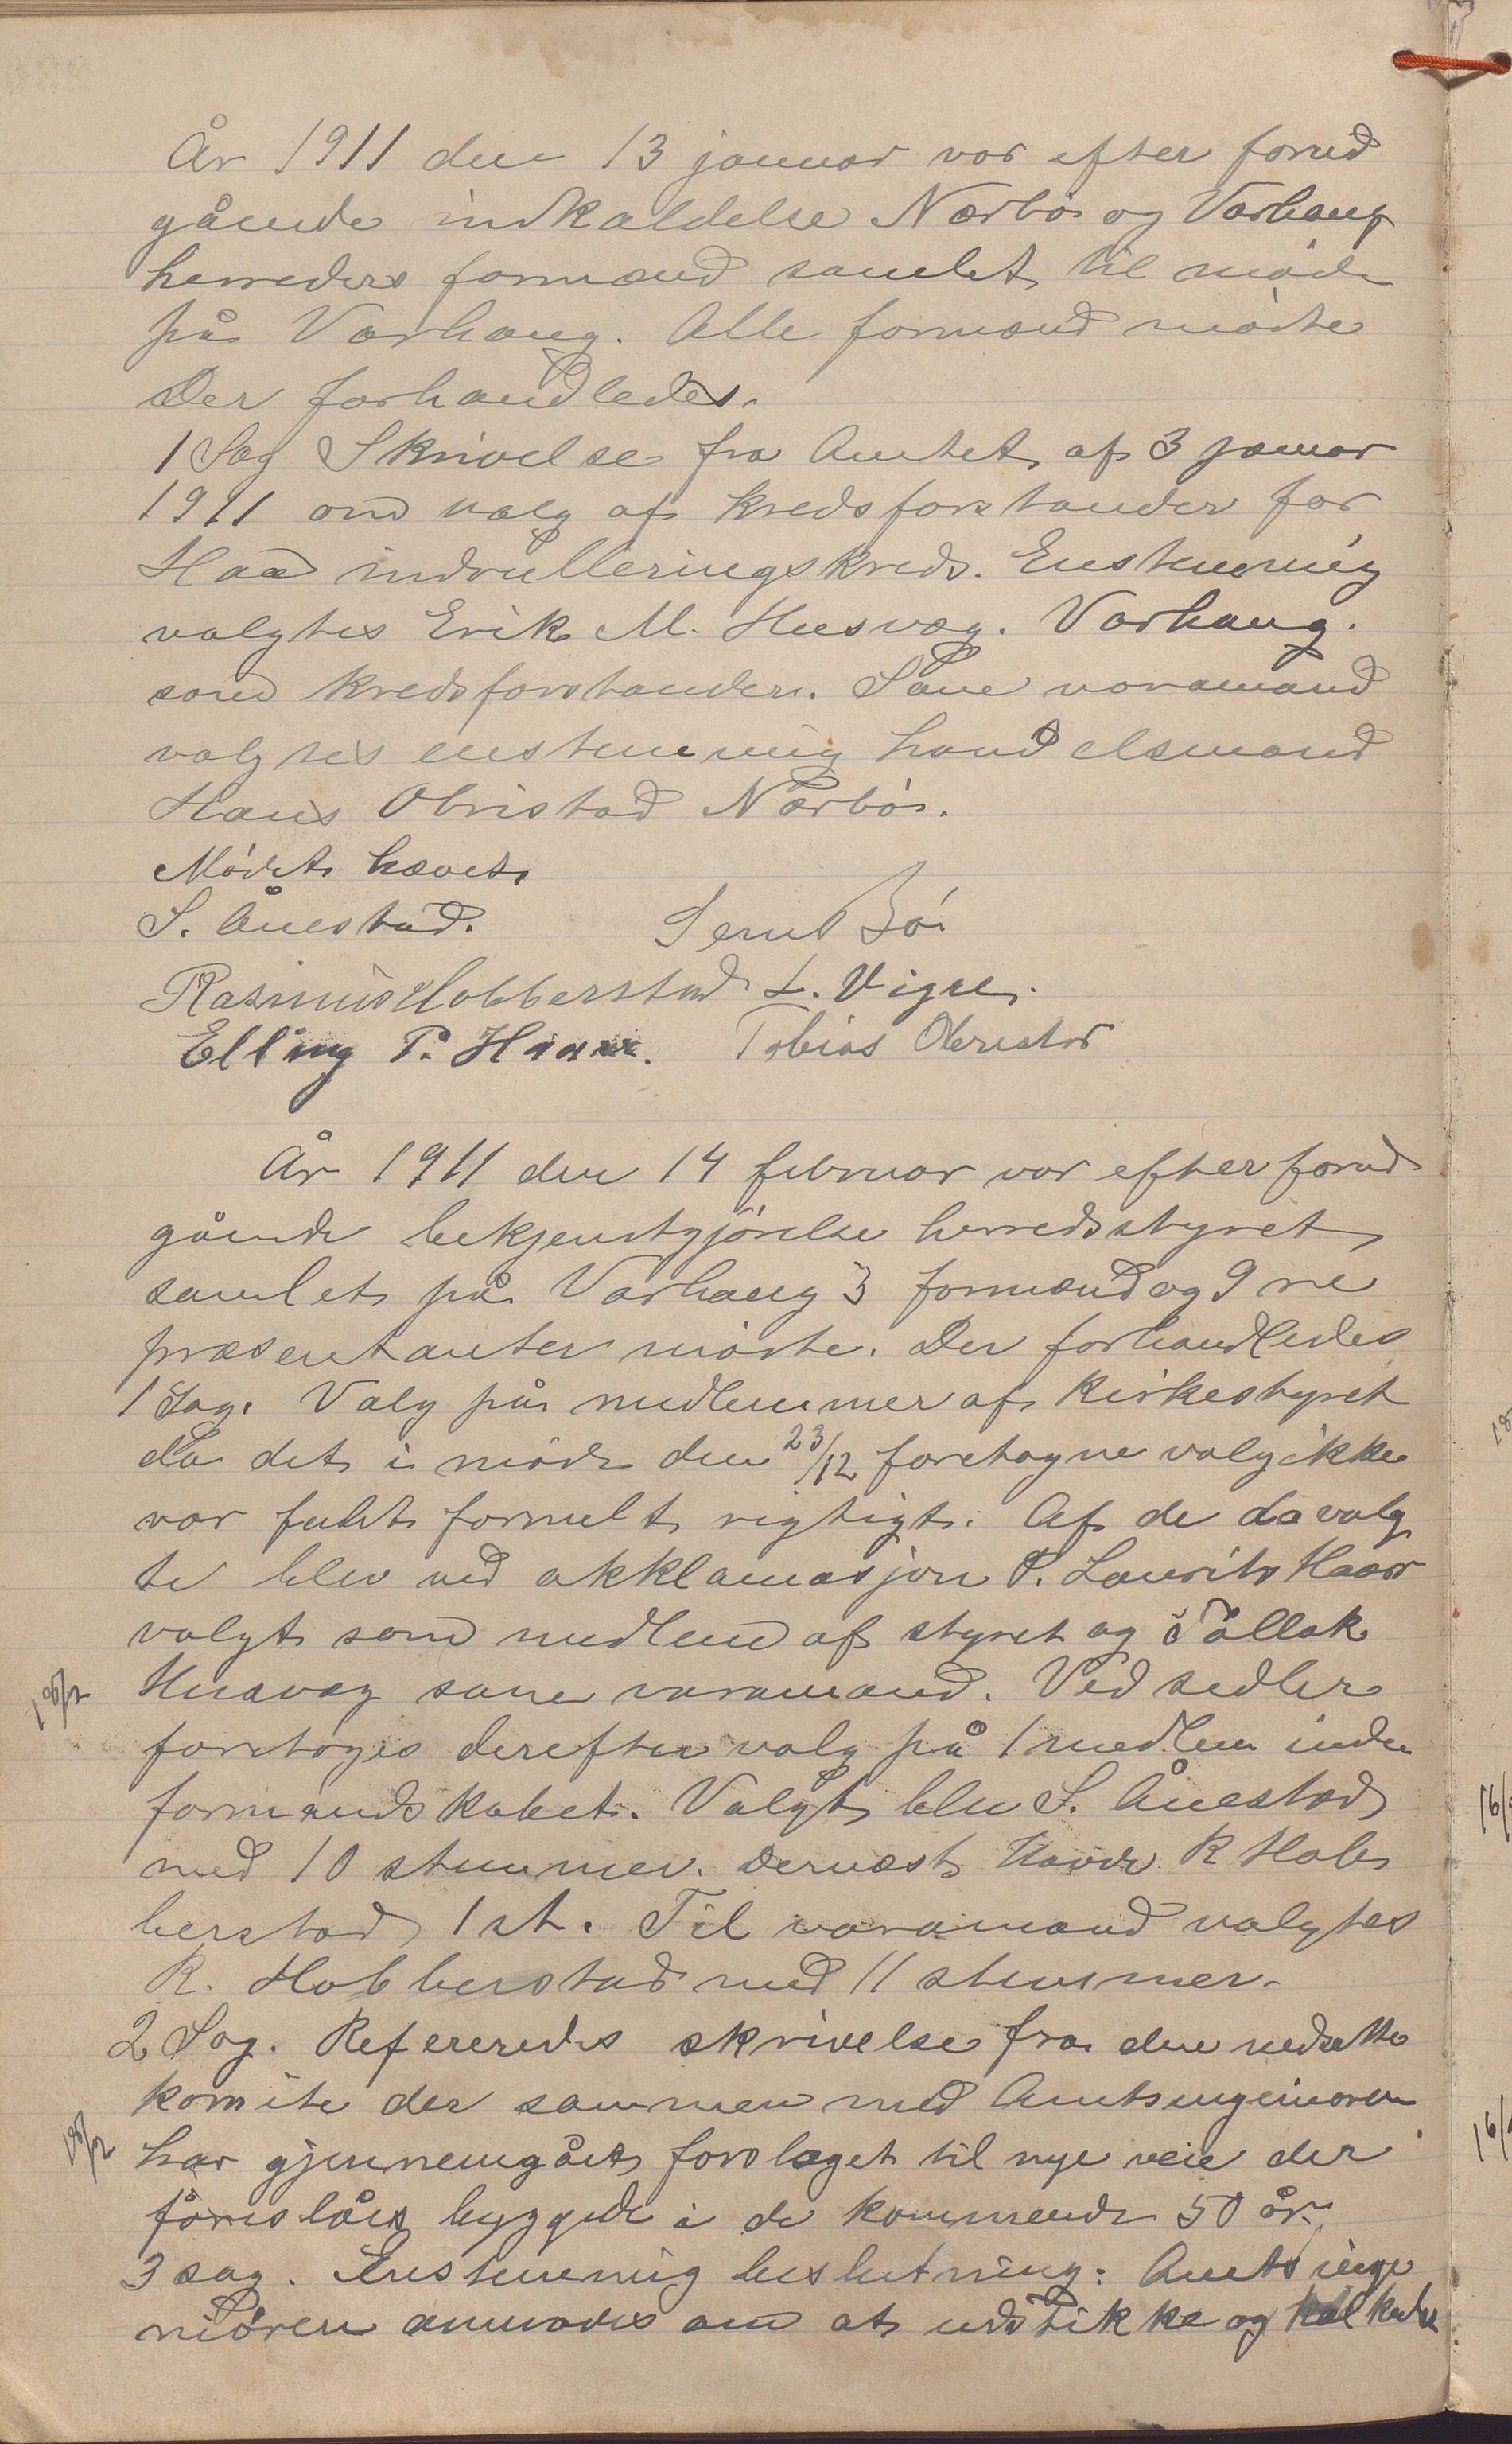 År 1911 den 13 januar var efter forud
gående indkaldelse Nærbø og Varhaug
herreders formænd samlet til møde
på Varhaug. Alle formænd mødte
Der forhandledes.
1 Sag Skrivelse fra Amtet af 3 januar
1911 om valg af kredsforstander for
Haa indrulleringskreds. Enstemmig
valgtes Erik M. Husvæg. Varhaug.
som kredsforstander. Som varamand
valgtes enstemmig handelsmand
Hans Obrestad Nærbø.
Mødet hævet.
S. Ånestad. Bø.
Rasmus Hobberstad L. Vigre.
Elling P. Haar. Tobias Obrestad
År 1911 den 14 februar var efter forud
gående bekjentgjørelse herredsstyret
samlet på Varhaug 3 formænd og 9 re
præsentanter mødte. Der forhandledes
1 Sag. Valg på medlemmer af kirkestyret
da det i møde den 23/12 foretagne valg ikke
var fuldt formelt rigtigt. Af de da valg
te blev ved akklamasjon P. Laurits Haar
valgt som medlem af styret og Tållak
18/2 Husvæg som varamand. Ved sedler
foretoges derefter valg på 1 medlem inden
formandskabet. Valgt blev S. Ånestad
med 10 stemmer. Dernæst havde R Hob
berstad 1 st. Til varamand valgtes
R. Hobberstad med 11 stemmer.
2 Sag. Refereredes skrivelse fra den nedsatte
komite der sammen med Amtsingeniøren
18/2 har gjennemgået forslaget til nye veie der
foreslåes byggede i de kommende 50 år.
3 sag. Enstemmig beslutning: Amtsinge
niøren anmodes om at udstikke og kalkulere
16/
16/